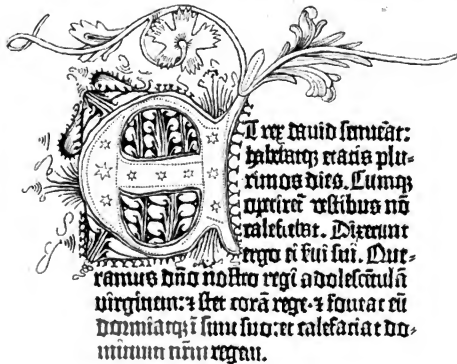 Et rex dauid senuerāt:
habebatqꝫ etatis plu-
rimos dies. Cumqꝫ
operiret̄ vestibus nō
calefiebat. Dixerunt
ergo ei ẜui sui. Que-
ramus dn̄o nostro regi adolescētulā
virginem: ⁊ stet corā rege · ⁊ foueat eū
dormiatqꝫ ī sinu suo: et calefaciat do-
minum nr̄m regem.